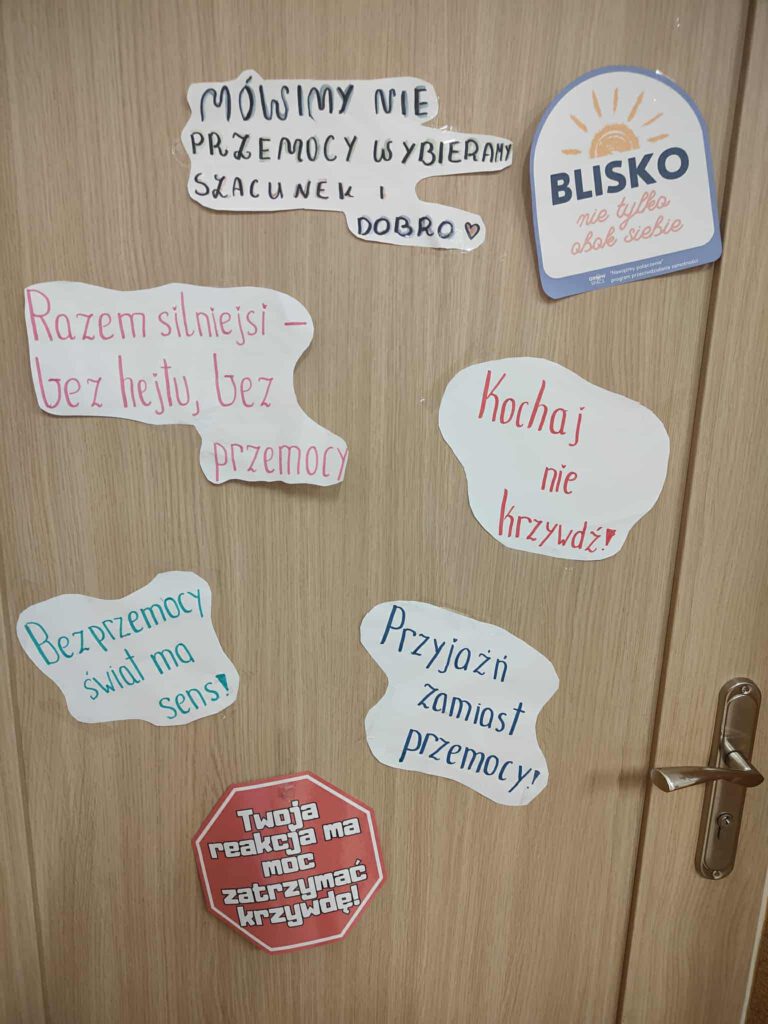 MÓWIMY NIE
PRZEMOCY WYBIERAMY
SZACUNEK I
DOBRO
BLISKO
nie tylko
obok siebie
"Nawiążmy połączenie"
program przeciwdziałania samotności
Razem silniejsi –
bez hejtu, bez
przemocy
Kochaj
nie
krzywdź!
Bez przemocy
świat ma
sens!
Przyjaźń
zamiast
przemocy!
Twoja
reakcja ma
moc
zatrzymać
krzywdę!